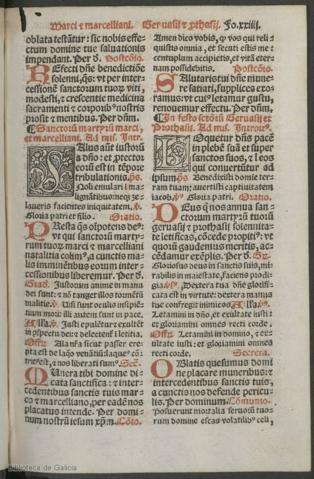 Marci et marcelliani. Geruasii et prothasij. Fo.xxiii.
oblata testãtur: sic nobis effe-
ctum domine tue saluationis
impendant. Per dñ. Postcõio.
REfecti dñe benedictiõe
solenni, q̃s: vt per inter-
cessionẽ sanctorum tuorũ viti,
modesti, et crescentie medicina
sacramenti et corporibꝰ nostris
prosit et mentibus. Per dñm.
Sanctorũ martyrũ marci,
et marcelliani. Ad miss. Intr.
SAlus aũt iustorũ
a dño: et protector
eorũ est in tẽpore
tribulationis. ps.
Noli emulari in ma-
lignãtibus: neqꝫ ze-
laueris facientes iniquitatem.
Gloria patri et filio. Oratio.
PResta q̃s oĩpotens deꝰ:
vt qui sanctorũ marty-
rum tuorũ marci et marcelliani
natalitia colimꝰ, a cunctis ma-
lis imminẽtibus eorum inter-
cessionibus liberemur. Per dñ.
Grad. Iustorum anime in manu
dei sunt: et nõ tanget illos tormẽtũ
malitie. Uisi sunt oculis insipiẽ-
tium mori: illi autem sunt in pace.
Alla. Iusti epulẽtur et exultẽt
in cõspectu dei: et delectent̃ i letitia.
Offr. Aĩa nr̃a sicut passer ere-
pta est de laq̃o venãtiũ: laqueꝰ cõ-
tritꝰ est, et nos liberati sumꝰ. Secr.
MUnera tibi domine di-
cata sanctifica: et inter-
cedentibus sanctis tuis mar-
co et marcelliano, per eadẽ nos
placatus intende. Per domi-
num nostrũ iesum xp̃m. Cõio.
Amen dico vobis, q̃ vos qui reli-
quistis omnia, et secuti estis me:
centuplum accipietis, et vitã eter-
nam possidebitis. Postcõio.
SAlutaris tui dñe mune-
re satiati, supplices exo-
ramus: vt cuiꝰ letamur gustu,
renouemur effectu. Per dñm.
In festo sctorũ Geruasij et
Prothasij. Ad miss. Introitꝰ.
LOquetur dñs pacẽ
in plebẽ suã et super
sanctos suos, et i eos
qui conuertũtur ad
ipsum. ps. Benedixisti domine ter-
ram tuam: auertisti captiuitatem
iacob. Gloria patri. Oratio.
DEus q̃ nos annua san-
ctorum martyrũ tuorũ
geruasij et prothasij solennita-
te letificas, cõcede propitiꝰ: vt
quorũ gaudemus meritis, ac-
cẽdamur exẽplis. Per d. Gr.
Gloriosus deus in sanctis suis, mi-
rabilis in maiestate, faciens prodi-
gia. Dextera tua dñe glorifi-
cata est in virtute: dextera manus
tua confregit inimicos. Alla.
Letamini in dño, et exultate iusti:
et gloriamini omnes recti corde.
Offr. Letamini in domino, et ex-
ultate iusti: et gloriamini omnes
recti corde. Secreta.
OBlatis quesumus domi-
ne placare muneribus: et
intercedentibus sanctis tuis,
a cunctis nos defende pericu-
lis. Per dominum. Cõmunio.
Posuerunt mortalia seruorũ tuo-
rum domine escas volatilibꝰ celi,
Biblioteca de Galicia